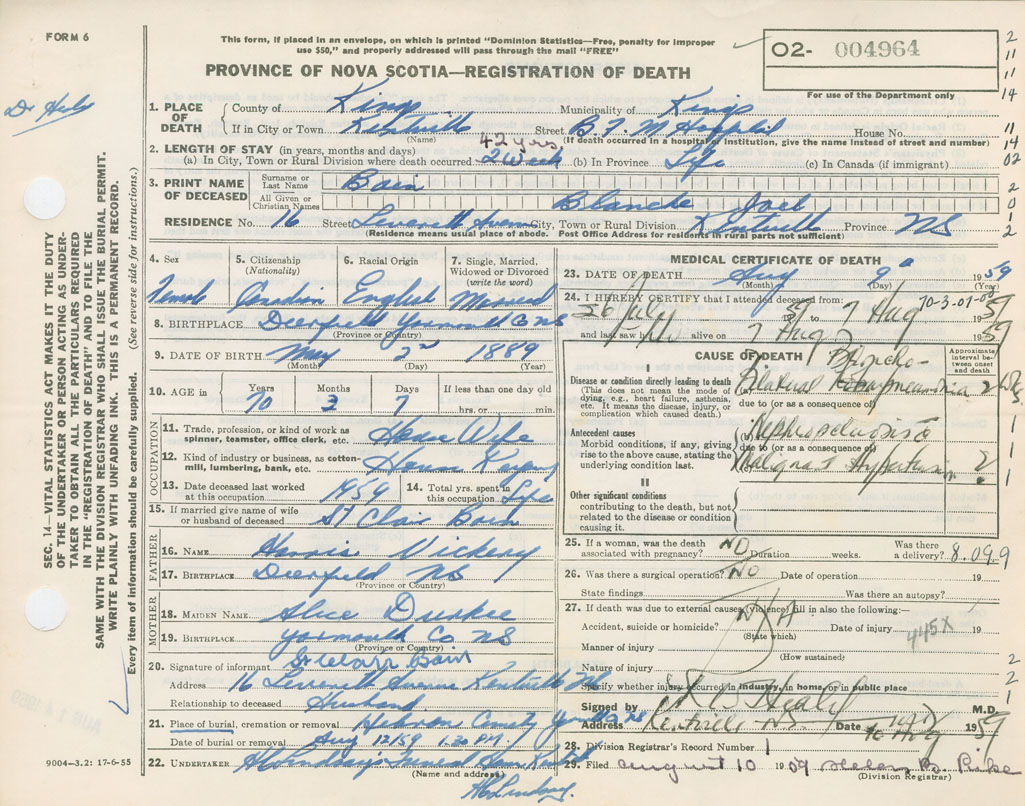 FORM 6
This form, if placed in an envelope, on which is printed "Dominion Statistics—Free, penalty for improper
use $50," and properly addressed will pass through the mail "FREE"
PROVINCE OF NOVA SCOTIA—REGISTRATION OF DEATH
02- 004964
For use of the Department only
2
11
11
14
11
14
02
2
0
1
2
SEC. 14—VITAL STATISTICS ACT MAKES IT THE DUTY
OF THE UNDERTAKER OR PERSON ACTING AS UNDER-
TAKER TO OBTAIN ALL THE PARTICULARS REQUIRED
IN THE "REGISTRATION OF DEATH" AND TO FILE THE
SAME WITH THE DIVISION REGISTRAR WHO SHALL ISSUE THE BURIAL PERMIT.
WRITE PLAINLY WITH UNFADING INK. THIS IS A PERMANENT RECORD.
Every item of information should be carefully supplied. (See reverse side for instructions.)
1. PLACE OF DEATH County of Kings Municipality of Kings
If in City or Town Kentville Street B. F. M Hospital House No.
(Name) (If death occurred in a hospital or institution, give the name instead of street and number)
2. LENGTH OF STAY (in years, months and days) 42 yrs
(a) In City, Town or Rural Division where death occurred 2 Week (b) In Province Life (c) In Canada (if immigrant)
3. PRINT NAME OF DECEASED
Surname or Last Name Bain
All Given or Christian Names Blanche
RESIDENCE No. 16 Street Leverett Avenue City, Town or Rural Division Kentville Province NS
(Residence means usual place of abode. Post Office Address for residents in rural parts not sufficient)
4. Sex Female
5. Citizenship (Nationality) Canadian
6. Racial Origin English
7. Single, Married, Widowed or Divorced (write the word) Married
8. BIRTHPLACE Deerfield Yarmouth Co NS
(Province or Country)
9. DATE OF BIRTH May 2nd 1889
(Month) (Day) (Year)
10. AGE in Years 70 Months 3 Days 7 If less than one day old
hrs. or min.
OCCUPATION
11. Trade, profession, or kind of work as spinner, teamster, office clerk, etc. House Wife
12. Kind of industry or business, as cotton-mill, lumbering, bank, etc. House Keeping
13. Date deceased last worked at this occupation 1959
14. Total yrs. spent in this occupation Life
15. If married give name of wife or husband of deceased St Clair Bain
FATHER
16. NAME Harris Vickery
17. BIRTHPLACE Deerfield NS
(Province or Country)
MOTHER
18. MAIDEN NAME Alice Durkee
19. BIRTHPLACE Yarmouth Co NS
(Province or Country)
20. Signature of informant St Clair Bain
Address 16 Leverett Avenue Kentville NS
Relationship to deceased Husband
21. Place of burial, cremation or removal Hebron County Yarmouth NS
Date of burial or removal Aug 12/59 1.30 PM
22. UNDERTAKER
(Name and address)
9004—3.2: 17-6-55
MEDICAL CERTIFICATE OF DEATH
23. DATE OF DEATH Aug 9 1959
(Month) (Day) (Year)
24. I HEREBY CERTIFY that I attended deceased from:
26 July 59 to 7 Aug 59
and last saw h alive on 7 Aug 59
CAUSE OF DEATH
Approximate interval between onset and death
I
Disease or condition directly leading to death
(This does not mean the mode of dying, e.g., heart failure, asthenia, etc. It means the disease, injury, or complication which caused death.)
(a) Bilateral Broncho-pneumonia 2 wks
due to (or as a consequence of)
Antecedent causes
Morbid conditions, if any, giving rise to the above cause, stating the underlying condition last.
(b) Nephrosclerosis
due to (or as a consequence of)
(c) Malignant Hypertension ?
II
Other significant conditions
contributing to the death, but not related to the disease or condition causing it.
25. If a woman, was the death associated with pregnancy? NO Duration weeks. Was there a delivery? 8.099
26. Was there a surgical operation? NO Date of operation 19
State findings Was there an autopsy?
27. If death was due to external causes (violence) fill in also the following:—
Accident, suicide or homicide? N/A Date of injury 445X 19
(State which)
Manner of injury
(How sustained)
Nature of injury
Specify whether injury occurred in industry, in home, or in public place
Signed by Healy M.D.
Address Kentville NS Date 10 Aug 1959
28. Division Registrar's Record Number 1
29. Filed August 10 1959 Helen B. Pike
(Division Registrar)